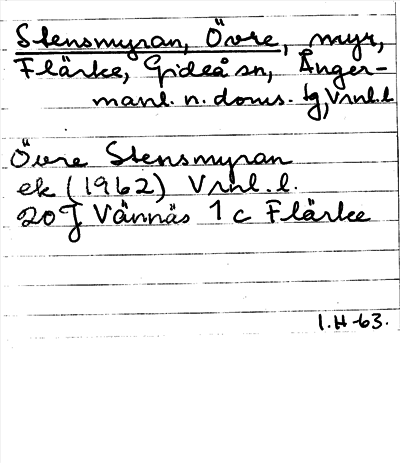 Stensmyran, Övre, myr,
Flärke, Gideå sn, Ånger-
manl. n. doms. tg, Vrnl. l.
Övre Stensmyran
ek (1962) Vrnl. l.
20 J Vännäs 1 c Flärke
I.H-63.